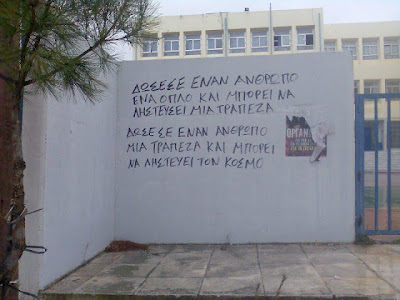 ΔΩΣΕ ΣΕ ΕΝΑΝ ΑΝΘΡΩΠΟ
ΕΝΑ ΟΠΛΟ ΚΑΙ ΜΠΟΡΕΙ ΝΑ
ΛΗΣΤΕΥΣΕΙ ΜΙΑ ΤΡΑΠΕΖΑ
ΔΩΣΕ ΣΕ ΕΝΑΝ ΑΝΘΡΩΠΟ
ΜΙΑ ΤΡΑΠΕΖΑ ΚΑΙ ΜΠΟΡΕΙ
ΝΑ ΛΗΣΤΕΥΕΙ ΤΟΝ ΚΟΣΜΟ